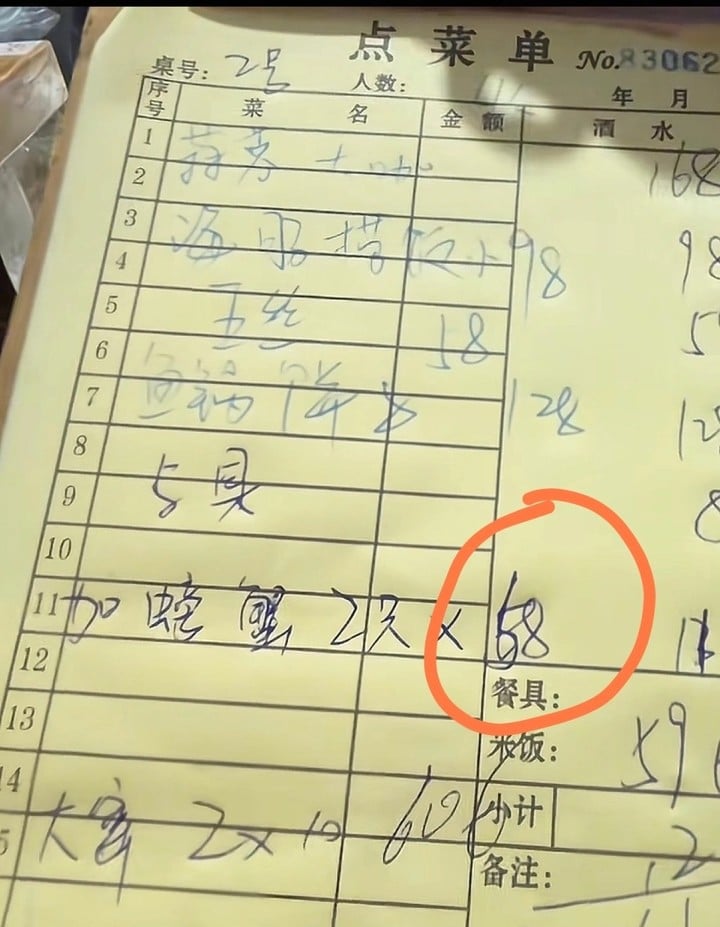 点菜单 No.83062
桌号: 2号 人数: 年 月
序号 菜名 金额 酒水
1 蒜蓉大咖 168
2
3 海胆捞饭小 98 98
4
5 玉丝 58 5
6
7 128 12
8 8
9 与具
10
11 加螃蟹 2只 x 58 1
12
餐具:
13 米饭: 59
14 小计
5 大 2x10 606 2
备注: